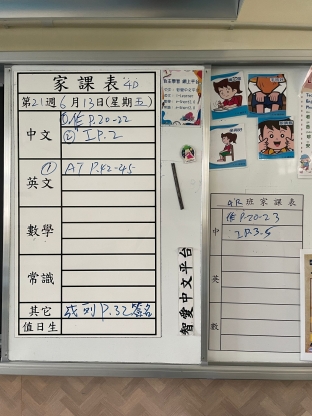 家課表 4D
第21週 6月13日(星期五)
中文
①作 P.20-22
② I P.2
英文
① A7 P.42-45
數學
常識
其它
P.32 簽名
值日生
智愛中文平台
4R班家課表
中
作 P.20-23
I P.3-5
英
數